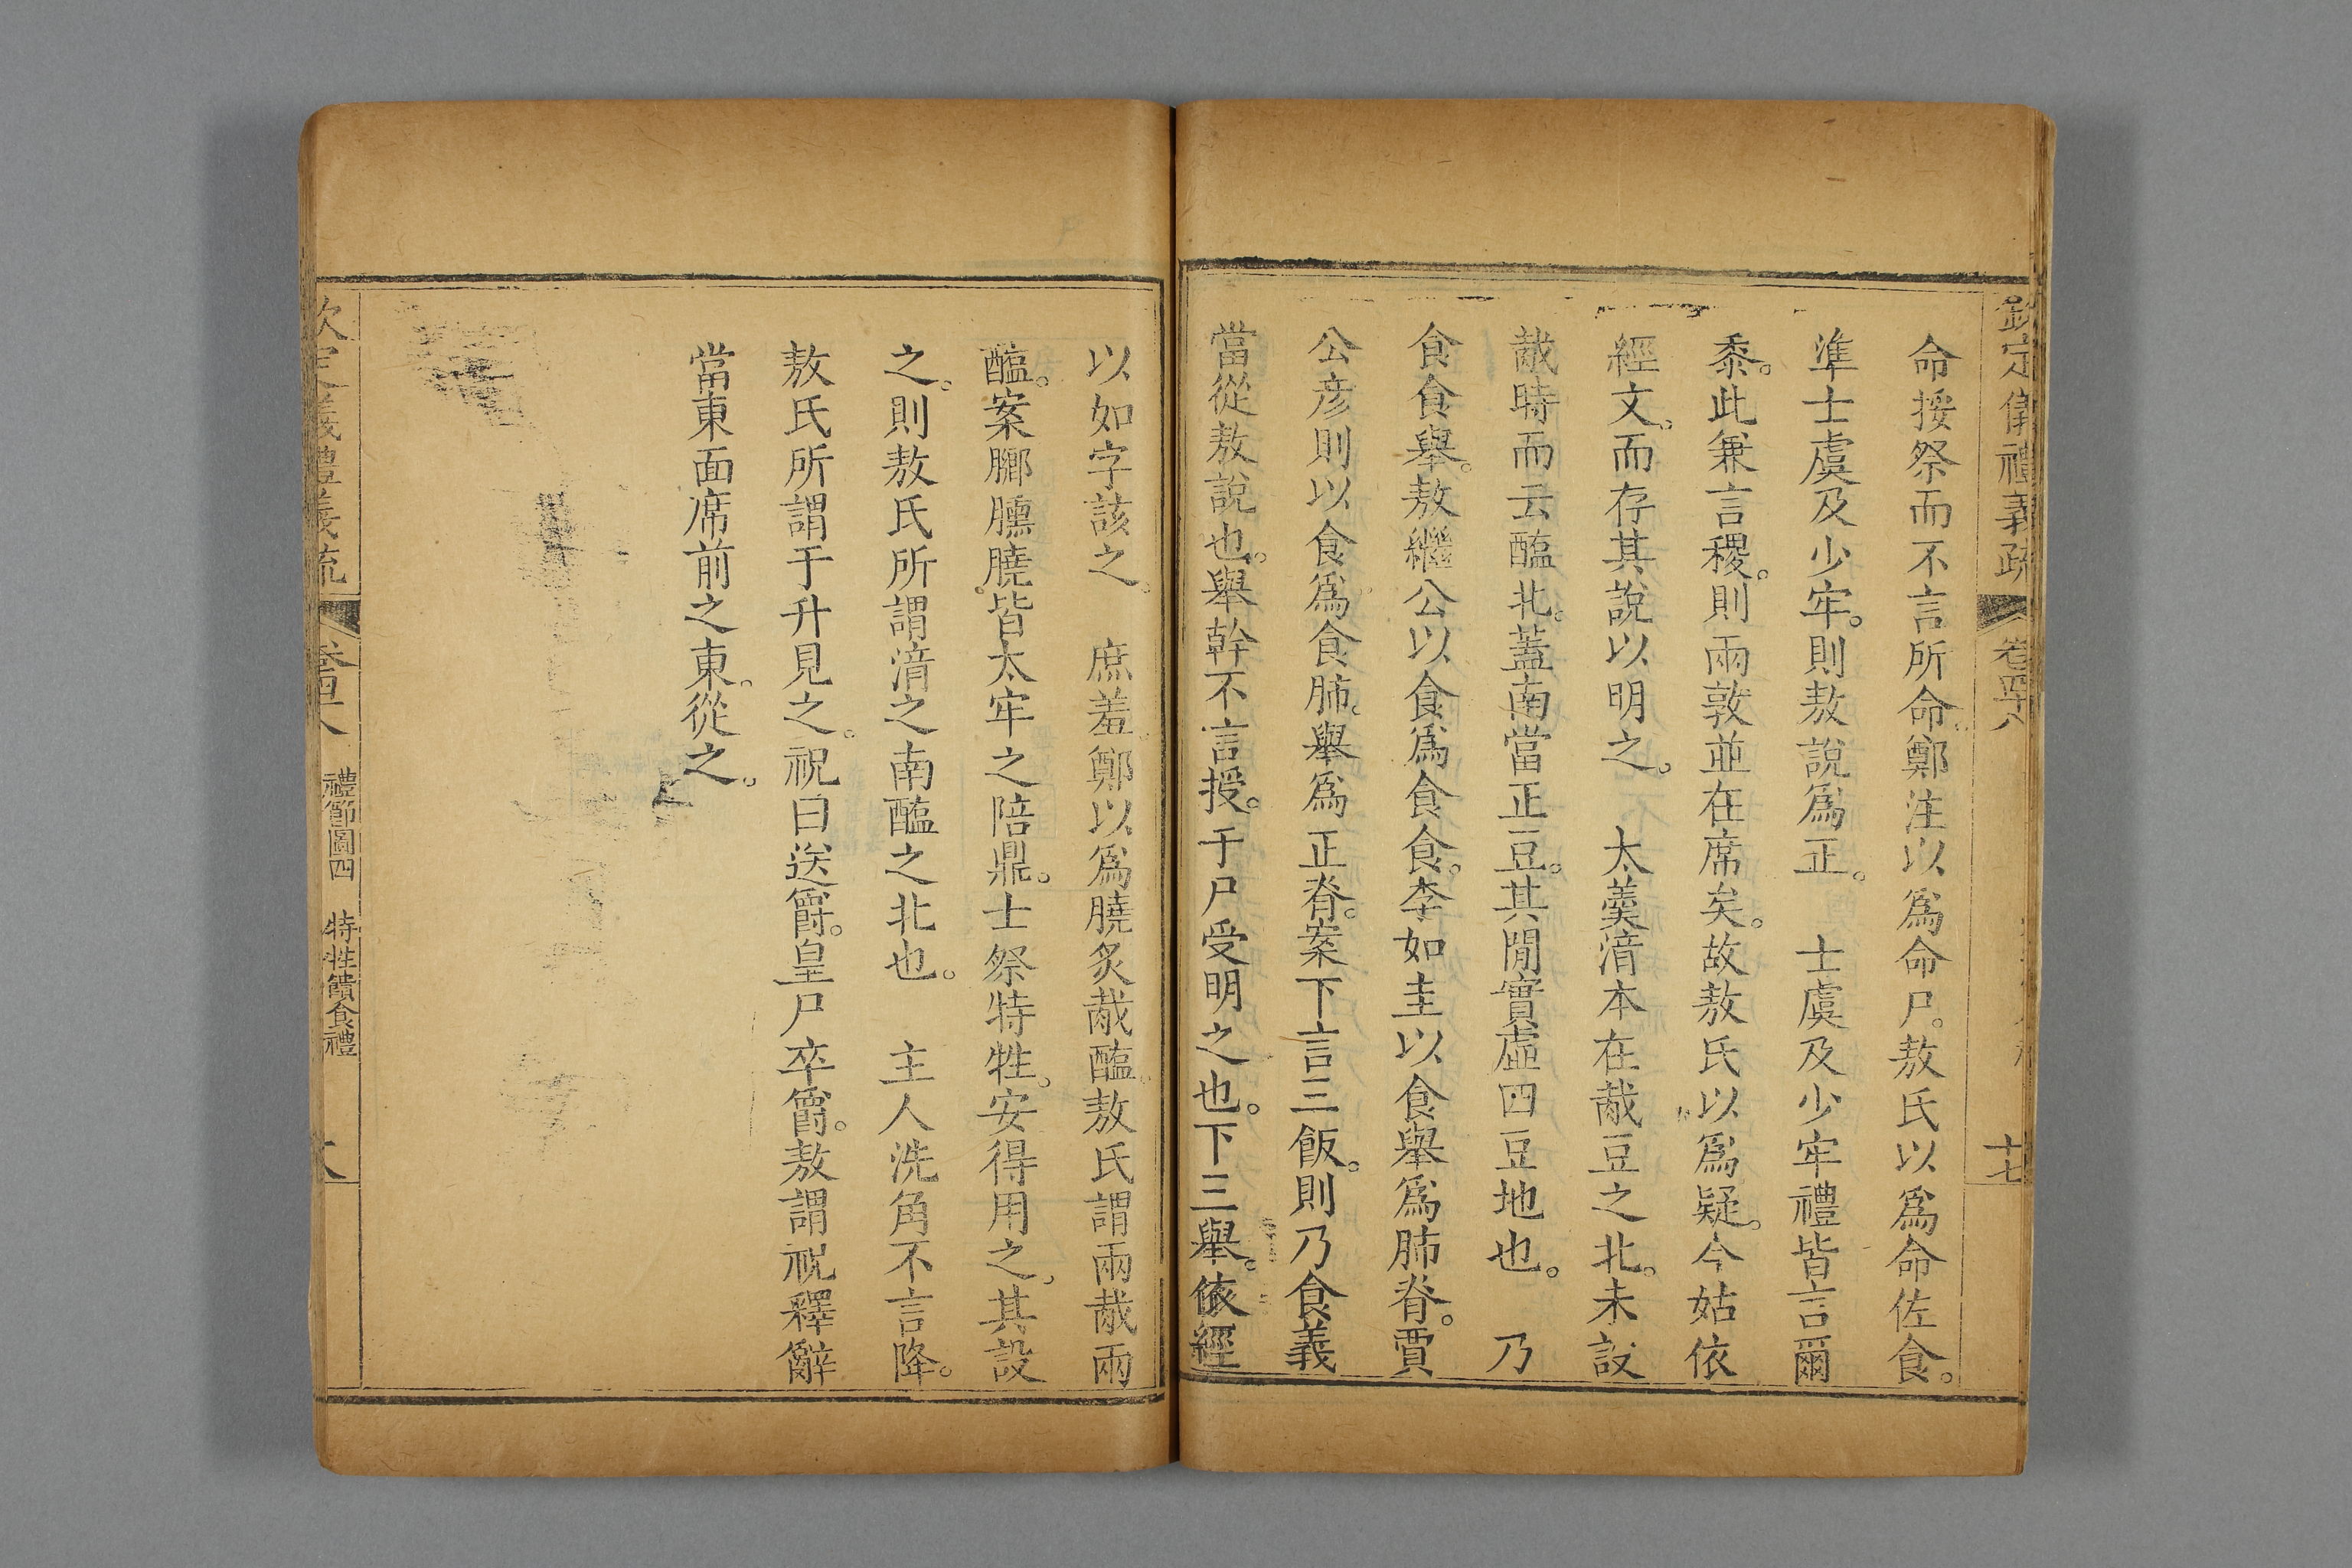 欽定儀禮義疏 卷四十八 十七
命挼祭而不言所命鄭注以爲命尸。敖氏以爲命佐食。
準士虞及少牢。則敖說爲正。 士虞及少牢禮皆言爾
黍。此兼言稷。則兩敦並在席矣。故敖氏以爲疑。今姑依
經文。而存其說以明之。 太羹湇本在胾豆之北。未設
胾時而云醢北。蓋南當正豆。其閒實虛四豆地也。 乃
食食舉。敖繼公以食爲食食。李如圭以食舉爲肺脊。賈
公彦則以食爲食肺。舉爲正脊。案下言三飯。則乃食義
當從敖說也。舉幹不言授。于尸受明之也。下三舉。依經
以如字該之。 庶羞。鄭以爲膮炙胾醢。敖氏謂兩胾兩
醢。案膷臐膮。皆太牢之陪鼎。士祭特牲。安得用之。其設
之。則敖氏所謂湇之南醢之北也。 主人洗角不言降。
敖氏所謂于升見之。祝曰送爵。皇尸卒爵。敖謂祝釋辭
當東面席前之東。從之。
欽定儀禮義疏 卷四十八 禮節圖四 特牲饋食禮